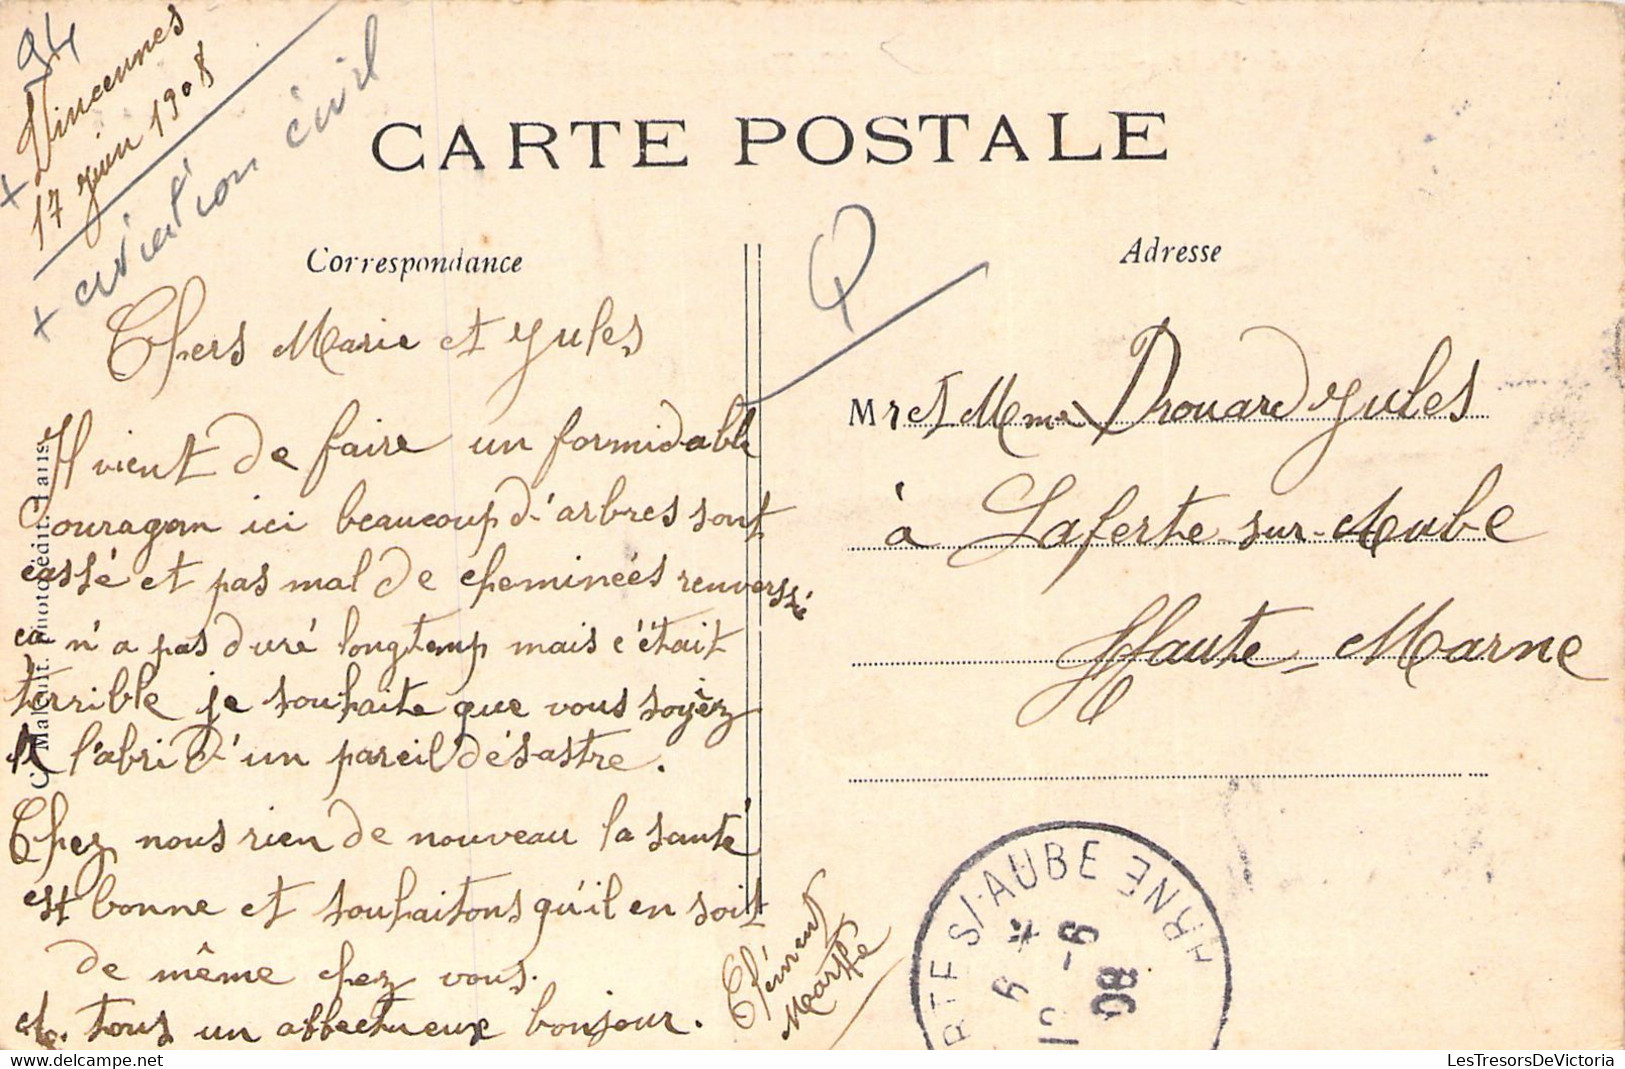 94
+ Vincennes
17 juin 1908
+ aviation civil
CARTE POSTALE
Correspondance
Adresse
Chers Marie et Jules
Il vient de faire un formidable
ouragan ici beaucoup d'arbres sont
cassé et pas mal de cheminées renversé
ca n'a pas duré longtemp mais c'était
terrible je souhaite que vous soyéz
a l'abri d'un pareil désastre.
Chez nous rien de nouveau la santé
est bonne et souhaitons qu'il en soit
de même chez vous.
et tous un affectueux bonjour.
Clément
Marthe
Mr et Mme Drouard Jules
à Laferte-sur-Aube
Haute-Marne
RTE S/AUBE
HRNE
6
9-6
08
Malcuit. photo édit.
delcampe.net
LesTresorsDeVictoria